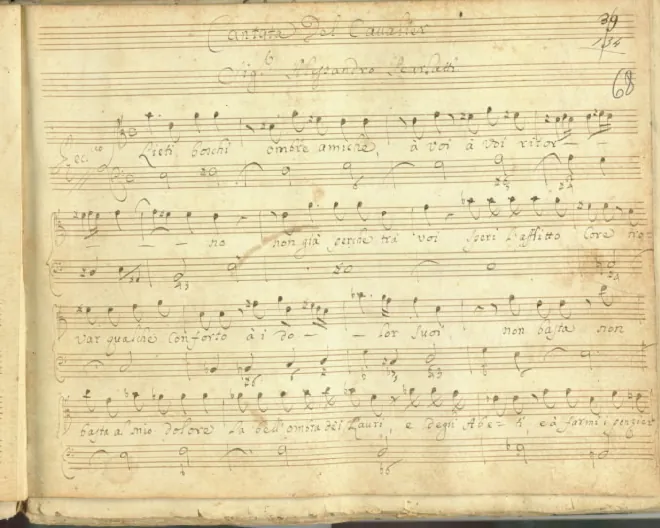 Cantata Del Cavalier
Sig.r Alessandro Scarlatti
34
134
68
Rec.vo
Lieti boschi ombre amiche, à voi à voi ritor-
no non già perche trà voi speri l'afflitto Core tro-
var qualche Conforto à i do- lor suoi non basta non
basta al mio dolore la dell'ombra de i Lauri, e degli Abe-ti, e à farmi i pensier